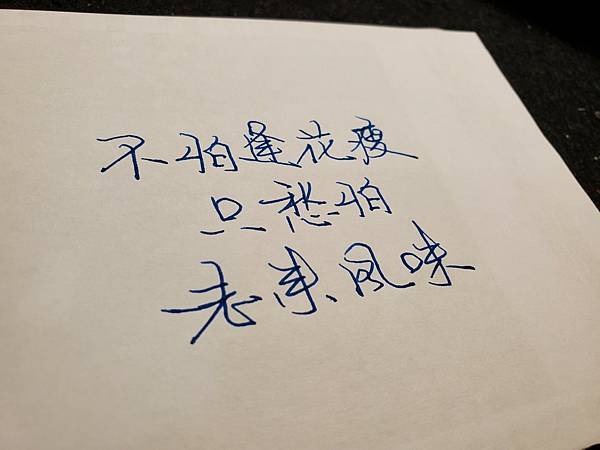 不怕逢花瘦
只愁怕
老来风味